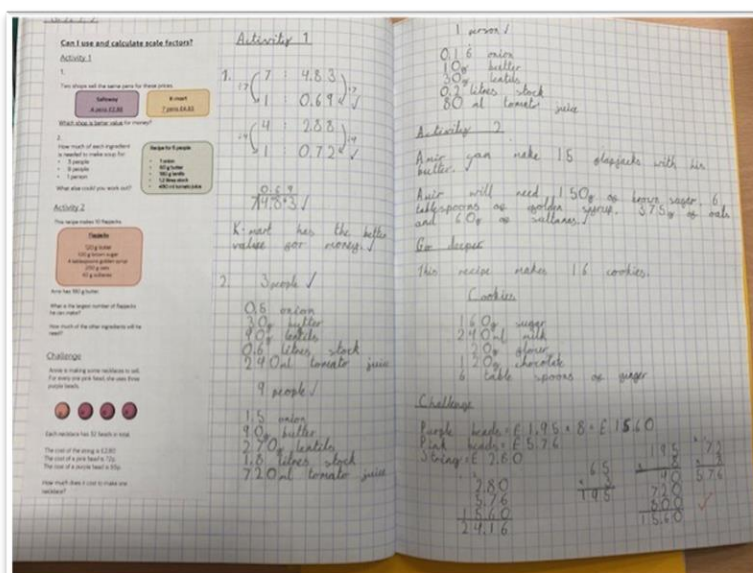 Can I use and calculate scale factors?
Activity 1
1.
Two shops sell the same pens for these prices.
Safeway
4 pens £2.88
K-mart
7 pens £4.83
Which shop is better value for money?
2.
How much of each ingredient
is needed to make soup for
• 3 people
• 9 people
• 1 person
What else could you work out?
Recipe for 6 people
• 1 onion
• 60 g butter
• 180 g lentils
• 1.2 litres stock
• 480 ml tomato juice
Activity 2
This recipe makes 10 flapjacks
Flapjacks
120 g butter
100 g brown sugar
4 tablespoons golden syrup
250 g oats
40 g sultanas
Amir has 180 g butter.
What is the largest number of flapjacks
he can make?
How much of the other ingredients will he
need?
Challenge
Annie is making some necklaces to sell.
For every one pink bead, she uses three
purple beads.
Each necklace has 32 beads in total.
The cost of the string is £2.80
The cost of a pink bead is 72p.
The cost of a purple bead is 65p.
How much does it cost to make one
necklace?
Activity 1
1.
÷7 7 : 4.83 ÷7
1 : 0.69
÷4 4 : 2.88 ÷4
1 : 0.72
0.69
7 4.83
K-mart has the better
value for money.
2. 3 people
0.5 onion
30g butter
90g lentils
0.6 litres stock
240ml tomato juice
9 people
1.5 onion
90g butter
270g lentils
1.8 litres stock
720ml tomato juice
1 person
0.16 onion
10g butter
30g lentils
0.2 litres stock
80 ml tomato juice
Activity 2
Amir can make 15 flapjacks with his
butter.
Amir will need 150g of brown sugar, 6
tablespoons of golden syrup, 375g of oats
and 60g of sultanas.
Go deeper
This recipe makes 16 cookies.
Cookies
160g sugar
240ml milk
20g flour
120g chocolate
6 table spoons of ginger
Challenge
Purple beads = £1.95 × 8 = £15.60
Pink beads = £5.76
String = £2.80
2.80
5.76
15.60
24.16
65
195
195
40
720
800
1560
72
576